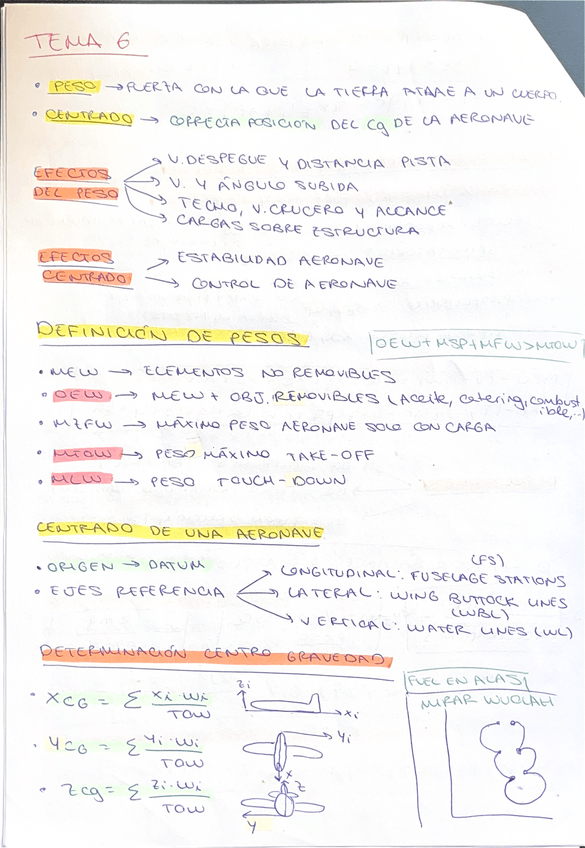 TEMA 6
• PESO → FUERZA CON LA QUE LA TIERRA ATRAE A UN CUERPO.
• CENTRADO → CORRECTA POSICIÓN DEL Cg DE LA AERONAVE
EFECTOS DEL PESO
→ V. DESPEGUE Y DISTANCIA PISTA
→ V. Y ÁNGULO SUBIDA
→ TECHO, V. CRUCERO Y ALCANCE
→ CARGAS SOBRE ESTRUCTURA
EFECTOS CENTRADO
→ ESTABILIDAD AERONAVE
→ CONTROL DE AERONAVE
DEFINICIÓN DE PESOS
OEW+MSP+MFW>MTOW
• MEW → ELEMENTOS NO REMOVIBLES
• OEW → MEW + OBJ. REMOVIBLES (Aceite, catering, combustible,..)
• MZFW → MÁXIMO PESO AERONAVE SOLO CON CARGA
• MTOW → PESO MÁXIMO TAKE-OFF
• MLW → PESO TOUCH-DOWN
CENTRADO DE UNA AERONAVE
• ORIGEN → DATUM
• EJES REFERENCIA
→ LONGITUDINAL: FUSELAGE STATIONS (FS)
→ LATERAL: WING BUTTOCK LINES (WBL)
→ VERTICAL: WATER LINES (WL)
DETERMINACIÓN CENTRO GRAVEDAD
FUEL EN ALAS
MIRAR WUOLAH
• XCG = Σ xi·wi / TOW
zi
xi
• YCG = Σ yi·wi / TOW
yi
x
• Zcg = Σ zi·wi / TOW
z
y